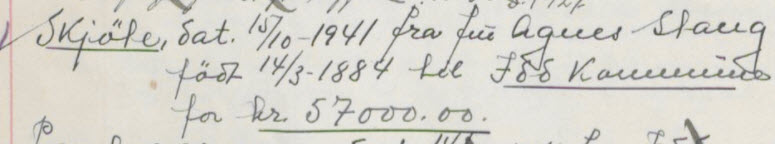 Skjöte, dat. 15/10-1941 fra frü Agnes Stang
födt 14/3-1884 til Idd Kommune
for kr. 57000.00.